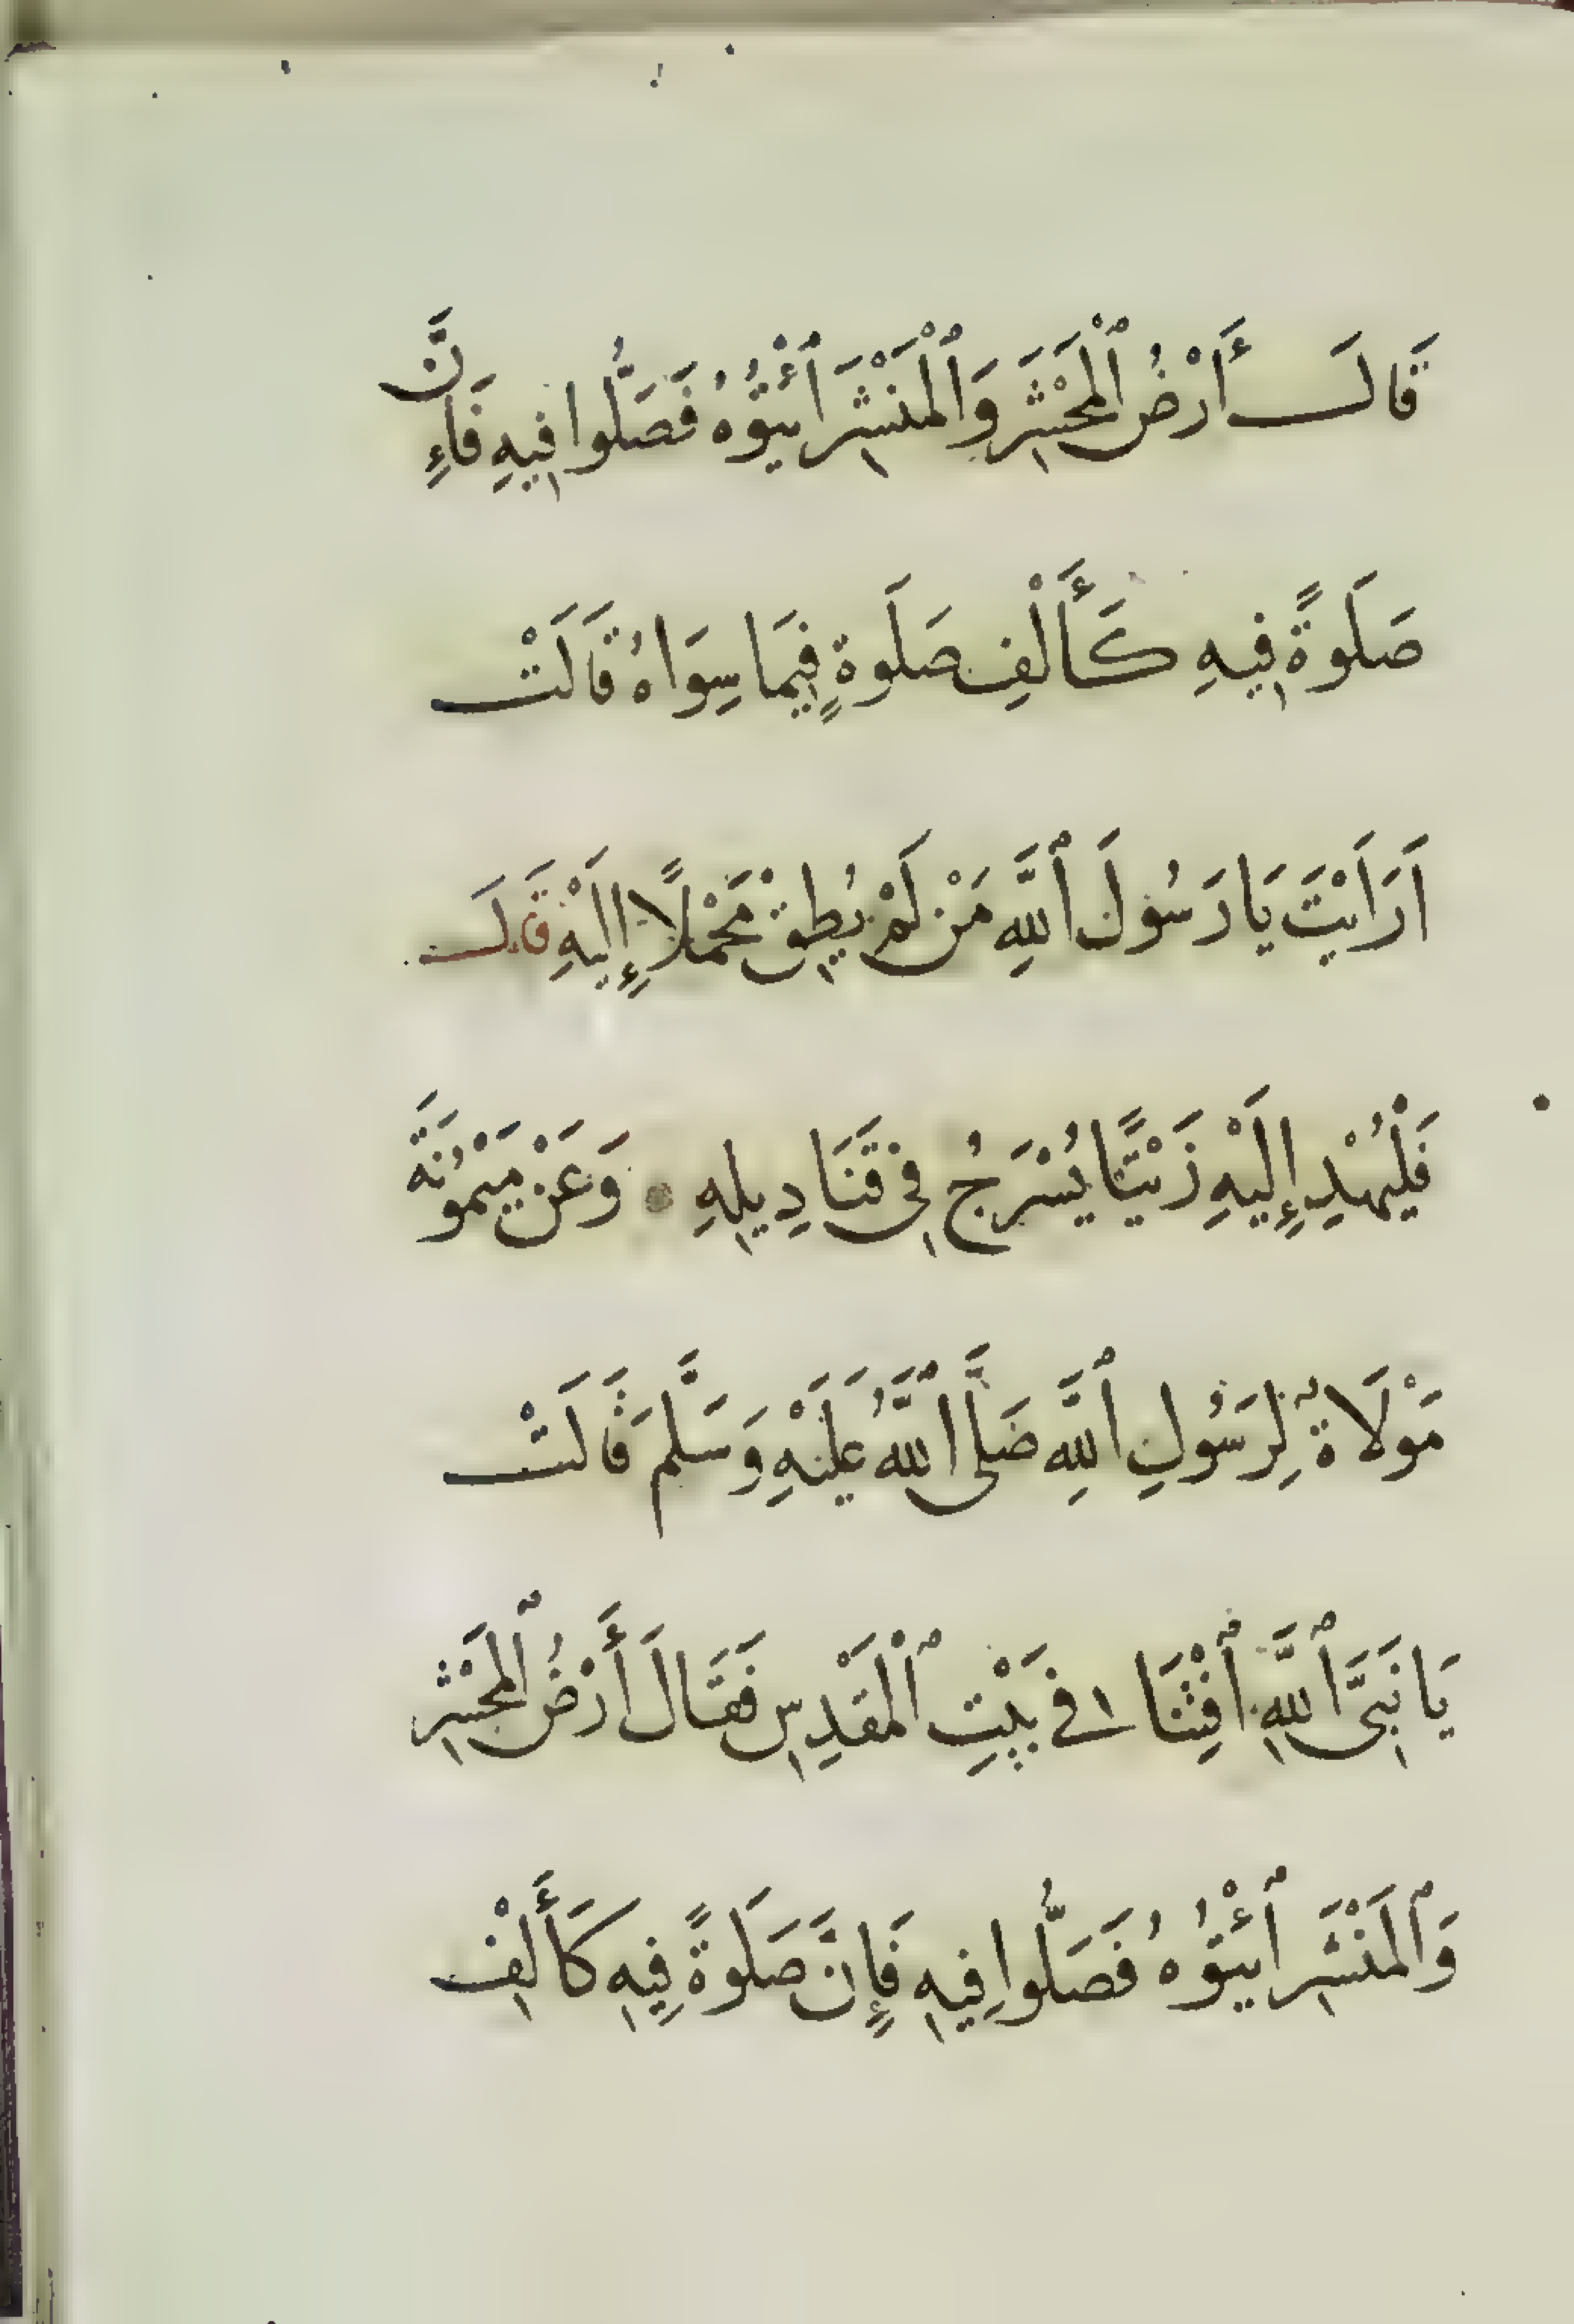 قَالَ أَرْضُ ٱلْمَحْشَرِ وَٱلْمَنْشَرِ ٱئْتُوْهُ فَصَلُّوا فِيهِ فَاءِنَّ
صَلَوةً فِيهِ كَأَلْفِ صَلَوةٍ فِيمَا سِوَاهُ قَالَتْ
اَرَاَيْتَ يَا رَسُولَ ٱللَّهِ مَنْ لَمْ يُطِقْ مَحْمَلًا إِلَيْهِ قَالَ
فَلْيُهْدِ إِلَيْهِ زَيْتًا يُسْرَجُ فِى قَنَادِيلِهِ • وَعَنْ مَيْمُونَةَ
مَوْلَاةٌ لِرَسُولِ ٱللَّهِ صَلَّى ٱللَّهُ عَلَيْهِ وَسَلَّمَ قَالَتْ
يَا نَبِىَّ ٱللَّهِ ٱفْتِنَا فِى بَيْتِ ٱلْمَقْدِسِ فَقَالَ أَرْضُ ٱلْمَحْشَرِ
وَٱلْمَنْشَرِ ٱئْتُوْهُ فَصَلُّوا فِيهِ فَإِنَّ صَلَوةً فِيهِ كَأَلْفِ